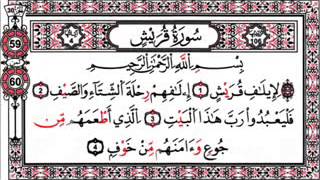 سُورَةُ قُرَيْشٍ
106
59
60
بِسْمِ اللَّهِ الرَّحْمَٰنِ الرَّحِيمِ
لِإِيلَافِ قُرَيْشٍ ١ إِۦلَافِهِمْ رِحْلَةَ الشِّتَاءِ وَالصَّيْفِ ٢
فَلْيَعْبُدُوا رَبَّ هَٰذَا الْبَيْتِ ٣ الَّذِي أَطْعَمَهُم مِّن
جُوعٍ وَءَامَنَهُم مِّنْ خَوْفٍ ٤